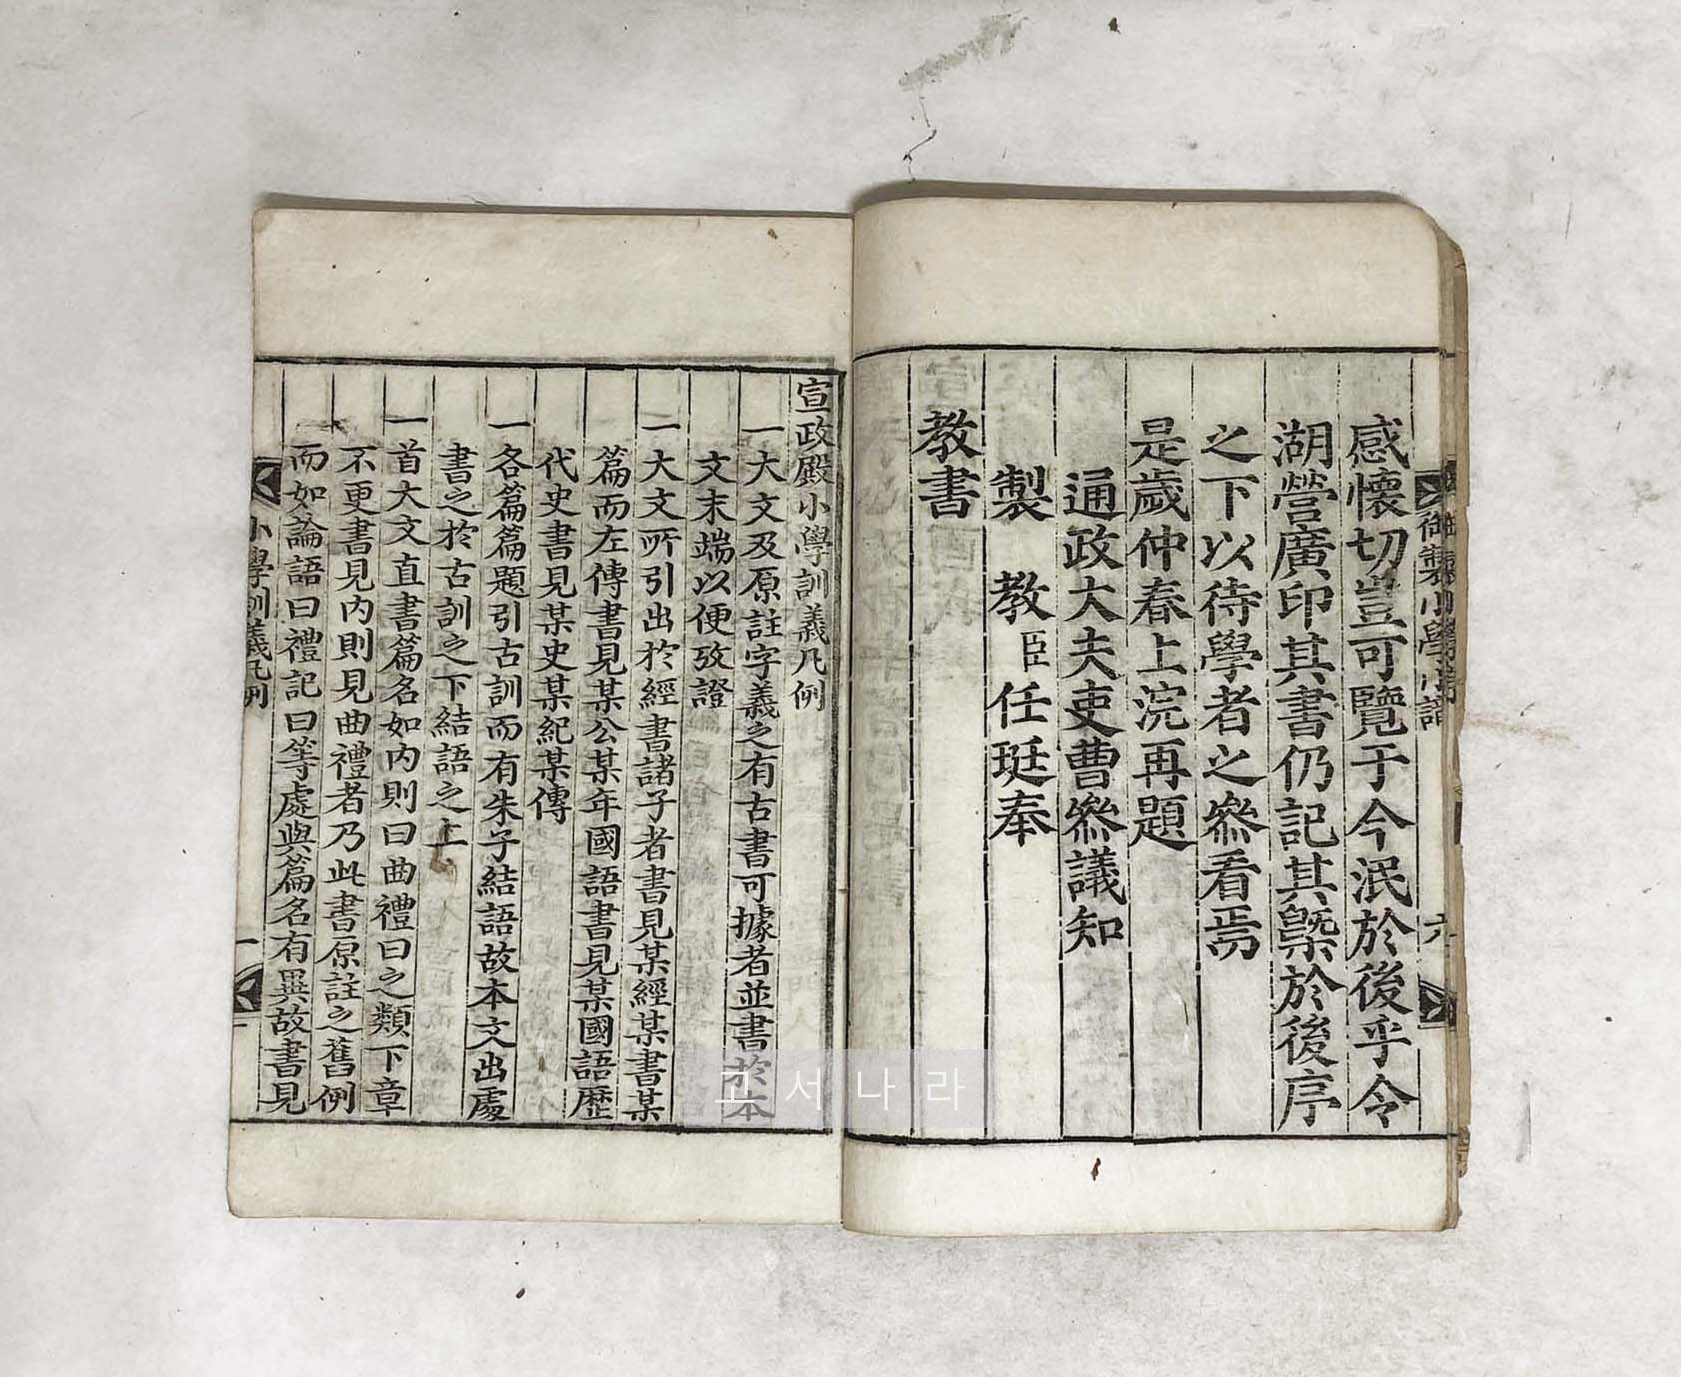 感懷切豈可覽于今泯於後乎令
湖營廣印其書仍記其槩於後序
之下以待學者之叅看焉
是歲仲春上浣再題
通政大夫吏曹叅議知
製 教臣任珽奉
教書
宣政殿小學訓義凡例
一大文及原註字義之有古書可據者並書於本
文末端以便攷證
一大文所引出於經書諸子者書見某經某書某
篇而左傳書見某公某年國語書見某國語歷
代史書見某史某紀某傳
一各篇篇題引古訓而有朱子結語故本文出處
書之於古訓之下結語之上
一首大文直書篇名如內則曰曲禮曰之類下章
不更書見內則見曲禮者乃此書原註之舊例
而如論語曰禮記曰等處與篇名有異故書見
小學訓義凡例
一
고서나라